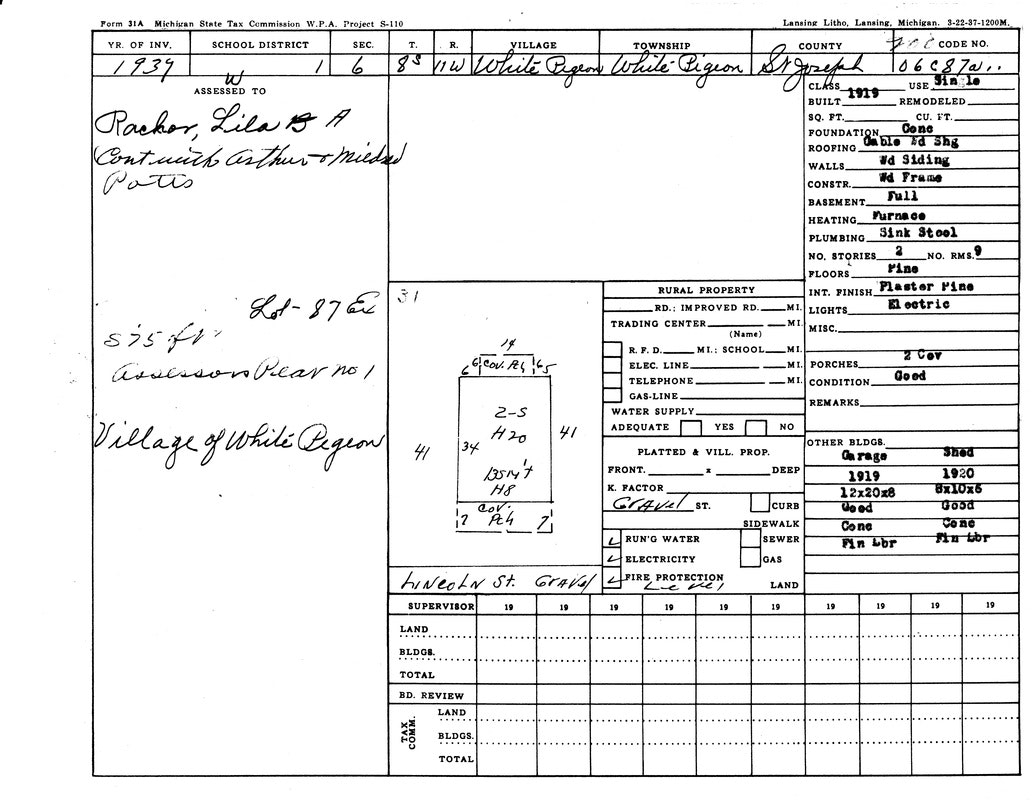 Form 31A Michigan State Tax Commission W.P.A. Project S-110
Lansing Litho, Lansing, Michigan. 3-22-37-1200M.
YR. OF INV. SCHOOL DISTRICT SEC. T. R. VILLAGE TOWNSHIP COUNTY CODE NO.
1939 W 1 6 8S 11W White Pigeon White Pigeon St Joseph 06C87a
ASSESSED TO
Rachor, Lila A
Cont. with Arthur & Mildred
Potts
Lot - 87 Ex
S 75 ft
Assessors Plat no 1
Village of White Pigeon
CLASS USE Single
BUILT 1919 REMODELED
SQ. FT. CU. FT.
FOUNDATION Conc
ROOFING Gable Wd Shg
WALLS Wd Siding
CONSTR. Wd Frame
BASEMENT Full
HEATING Furnace
PLUMBING Sink Stool
NO. STORIES 2 NO. RMS. 9
FLOORS Pine
INT. FINISH Plaster Pine
LIGHTS Electric
MISC.
PORCHES 2 Cov
CONDITION Good
REMARKS
OTHER BLDGS.
Garage Shed
1919 1920
12x20x8 8x10x6
Good Good
Conc Conc
Fin Lbr Fin Lbr
31
14
6 6 Cov. Pch 6 5
2-S
H 20
41 34 41
Bsm't
H8
Cov.
7 Pch 7
LINCOLN St. Gravel
RURAL PROPERTY
RD.; IMPROVED RD. MI.
TRADING CENTER MI.
(Name)
R. F. D. MI.; SCHOOL MI.
ELEC. LINE MI.
TELEPHONE MI.
GAS-LINE
WATER SUPPLY
ADEQUATE YES NO
PLATTED & VILL. PROP.
FRONT. x DEEP
K. FACTOR
Gravel ST. CURB
SIDEWALK
RUN'G WATER SEWER
ELECTRICITY GAS
FIRE PROTECTION
Level LAND
SUPERVISOR 19 19 19 19 19 19 19 19 19 19
LAND
BLDGS.
TOTAL
BD. REVIEW
TAX COMM.
LAND
BLDGS.
TOTAL